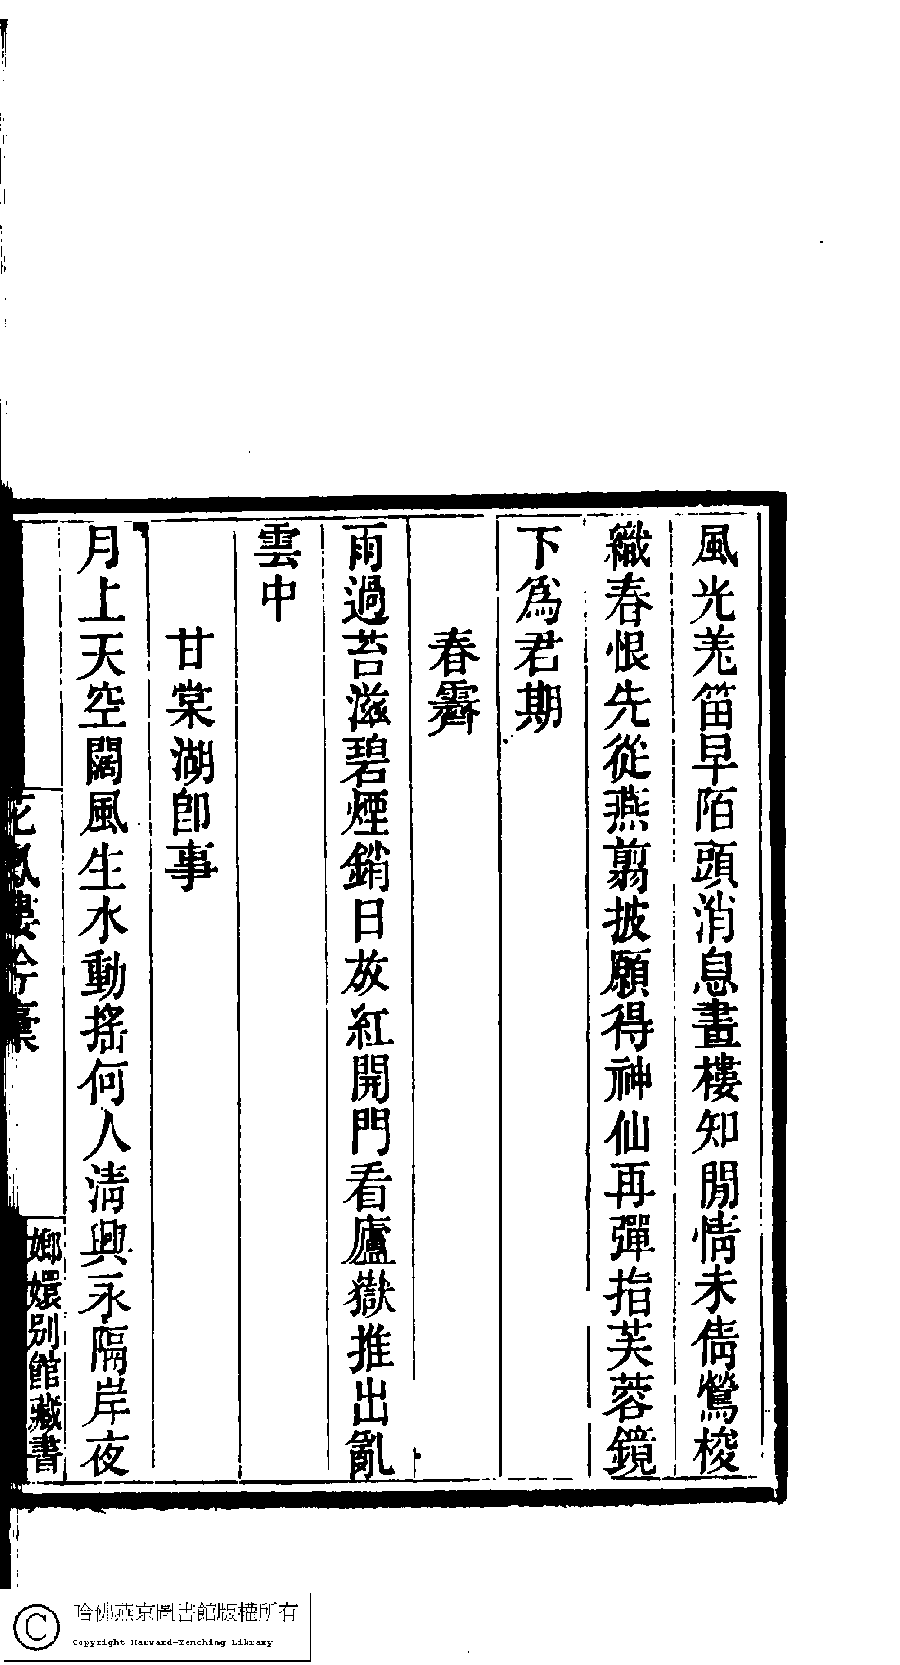 風光羗笛早陌頭消息畫樓知閒情未倩鶯梭
織春恨先從燕翦披願得神仙再彈指芙蓉鏡
下爲君期
春霽
雨過苔滋碧煙銷日放紅開門看廬嶽推出亂
雲中
甘棠湖卽事
月上天空闊風生水動搖何人淸興永隔岸夜
樓吟藁
嫏嬛別館藏書
哈佛燕京圖書館版權所有
Copyright Harvard-Yenching Library